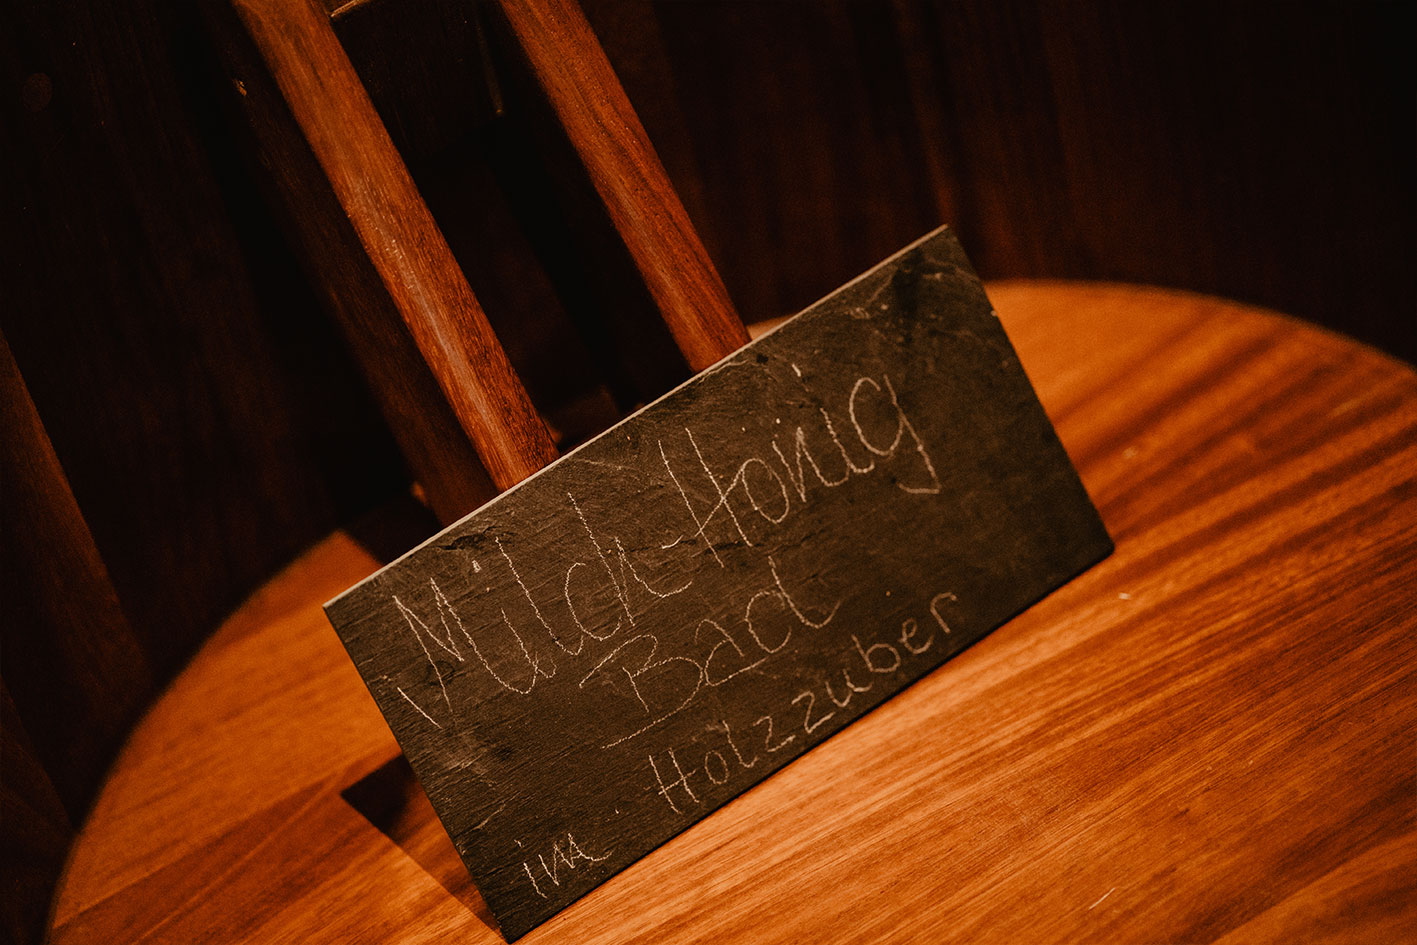 Milch-Honig
Bad
im Holzzuber